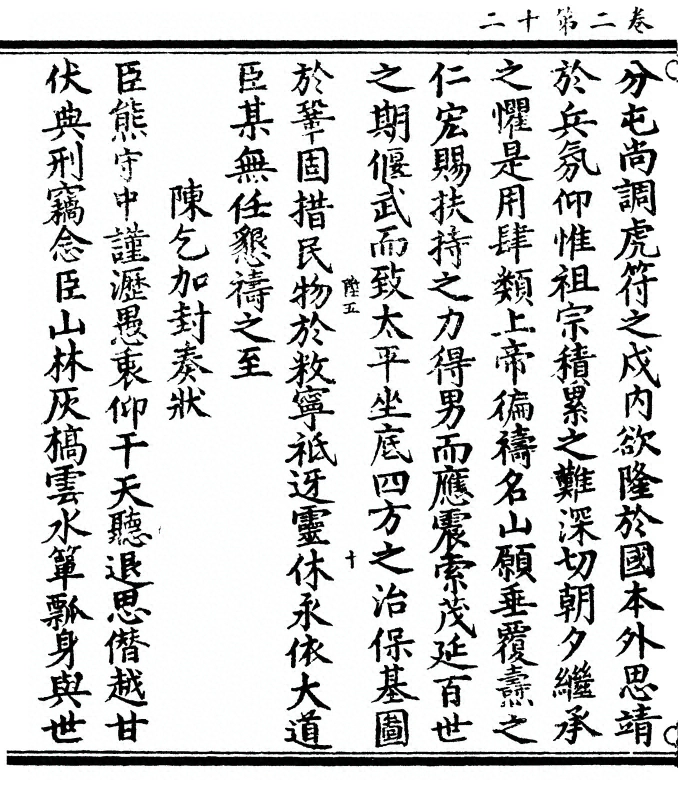 卷二第十二
分屯尚調虎符之戍内欲隆於國本外思靖
於兵氛仰惟祖宗積累之難深切朝夕繼承
之懼是用肆類上帝徧禱名山願垂覆燾之
仁宏賜扶持之力得男而應震索茂延百世
之期偃武而致太平坐底四方之治保基圖
於鞏固措民物於敉寧祗迓靈休永依大道
臣某無任懇禱之至
陸五
十
陳乞加封奏狀
臣熊守中謹瀝愚衷仰干天聽退思僭越甘
伏典刑竊念臣山林灰槁雲水簞瓢身與世